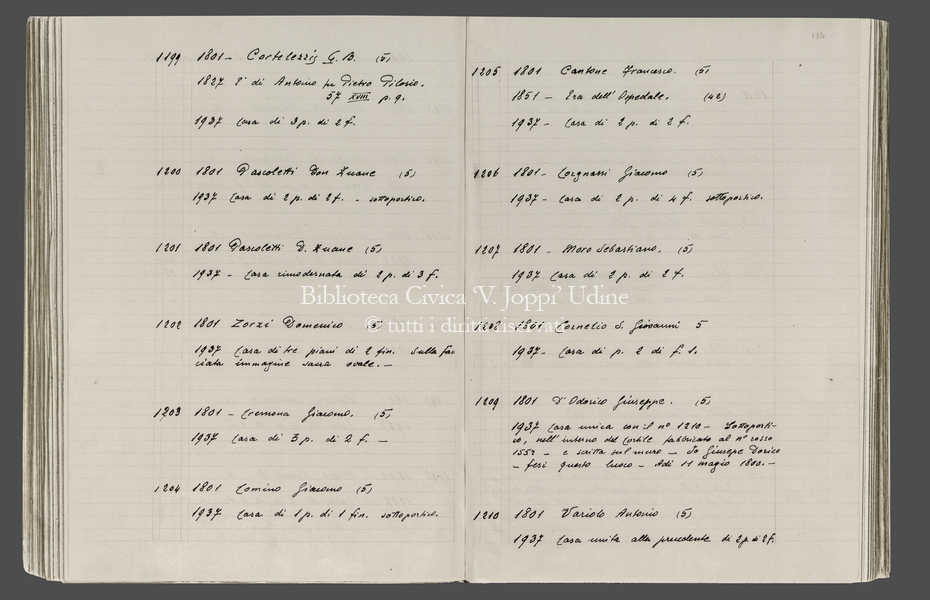 1199 1801 - Cortelezzis G. B. (5)
1827 E' di Antonio pr Pietro Pilosio.
57 XVIII p. 9.
1937 Casa di 3 p. di 2 f.
1200 1801 Pascoletti Don Zuane (5)
1937 Casa di 2 p. di 2 f. - sottoportico.
1201 1801 Pascoletti D. Zuane (5)
1937 - Casa rimodernata di 2 p. di 3 f.
1202 1801 Zorzi Domenico (5)
1937 Casa di tre piani di 2 fin. Sulla fac
ciata immagine sacra ovale. -
1203 1801 - Cremona Giacomo. (5)
1937 Casa di 3 p. di 2 f. -
1204 1801 Comino Giacomo (5)
1937 Casa di 1 p. di 1 fin. sottoportico.
196
1205 1801 Cantone Francesco. (5)
1851 - Era dell'Ospedale. (42)
1937 - Casa di 2 p. di 2 f.
1206 1801 - Giacomo (5)
1937 - Casa di 2 p. di 4 f. sottoportico.
1207 1801 - Moro Sebastiano. (5)
1937 Casa di 2 p. di 2 f.
1208 1801 Cornelio d. Giovanni 5
1937 - Casa di p. 2 di f. 1.
1209 1801 D'Odorico Giuseppe. (5)
1937 Casa unica con il n° 1210 - Sottoporti-
co, nell'interno del cortile fabbricato al n° rosso
1552 - e scritta sul muro - Io Giusepe Dorico
- fesi questo luoco - Adi 11 magio 1800. -
1210 1801 Variolo Antonio (5)
1937 Casa unita alla precedente di 2 p. di 2 f.
Biblioteca Civica 'V. Joppi' Udine
© tutti i diritti riservati